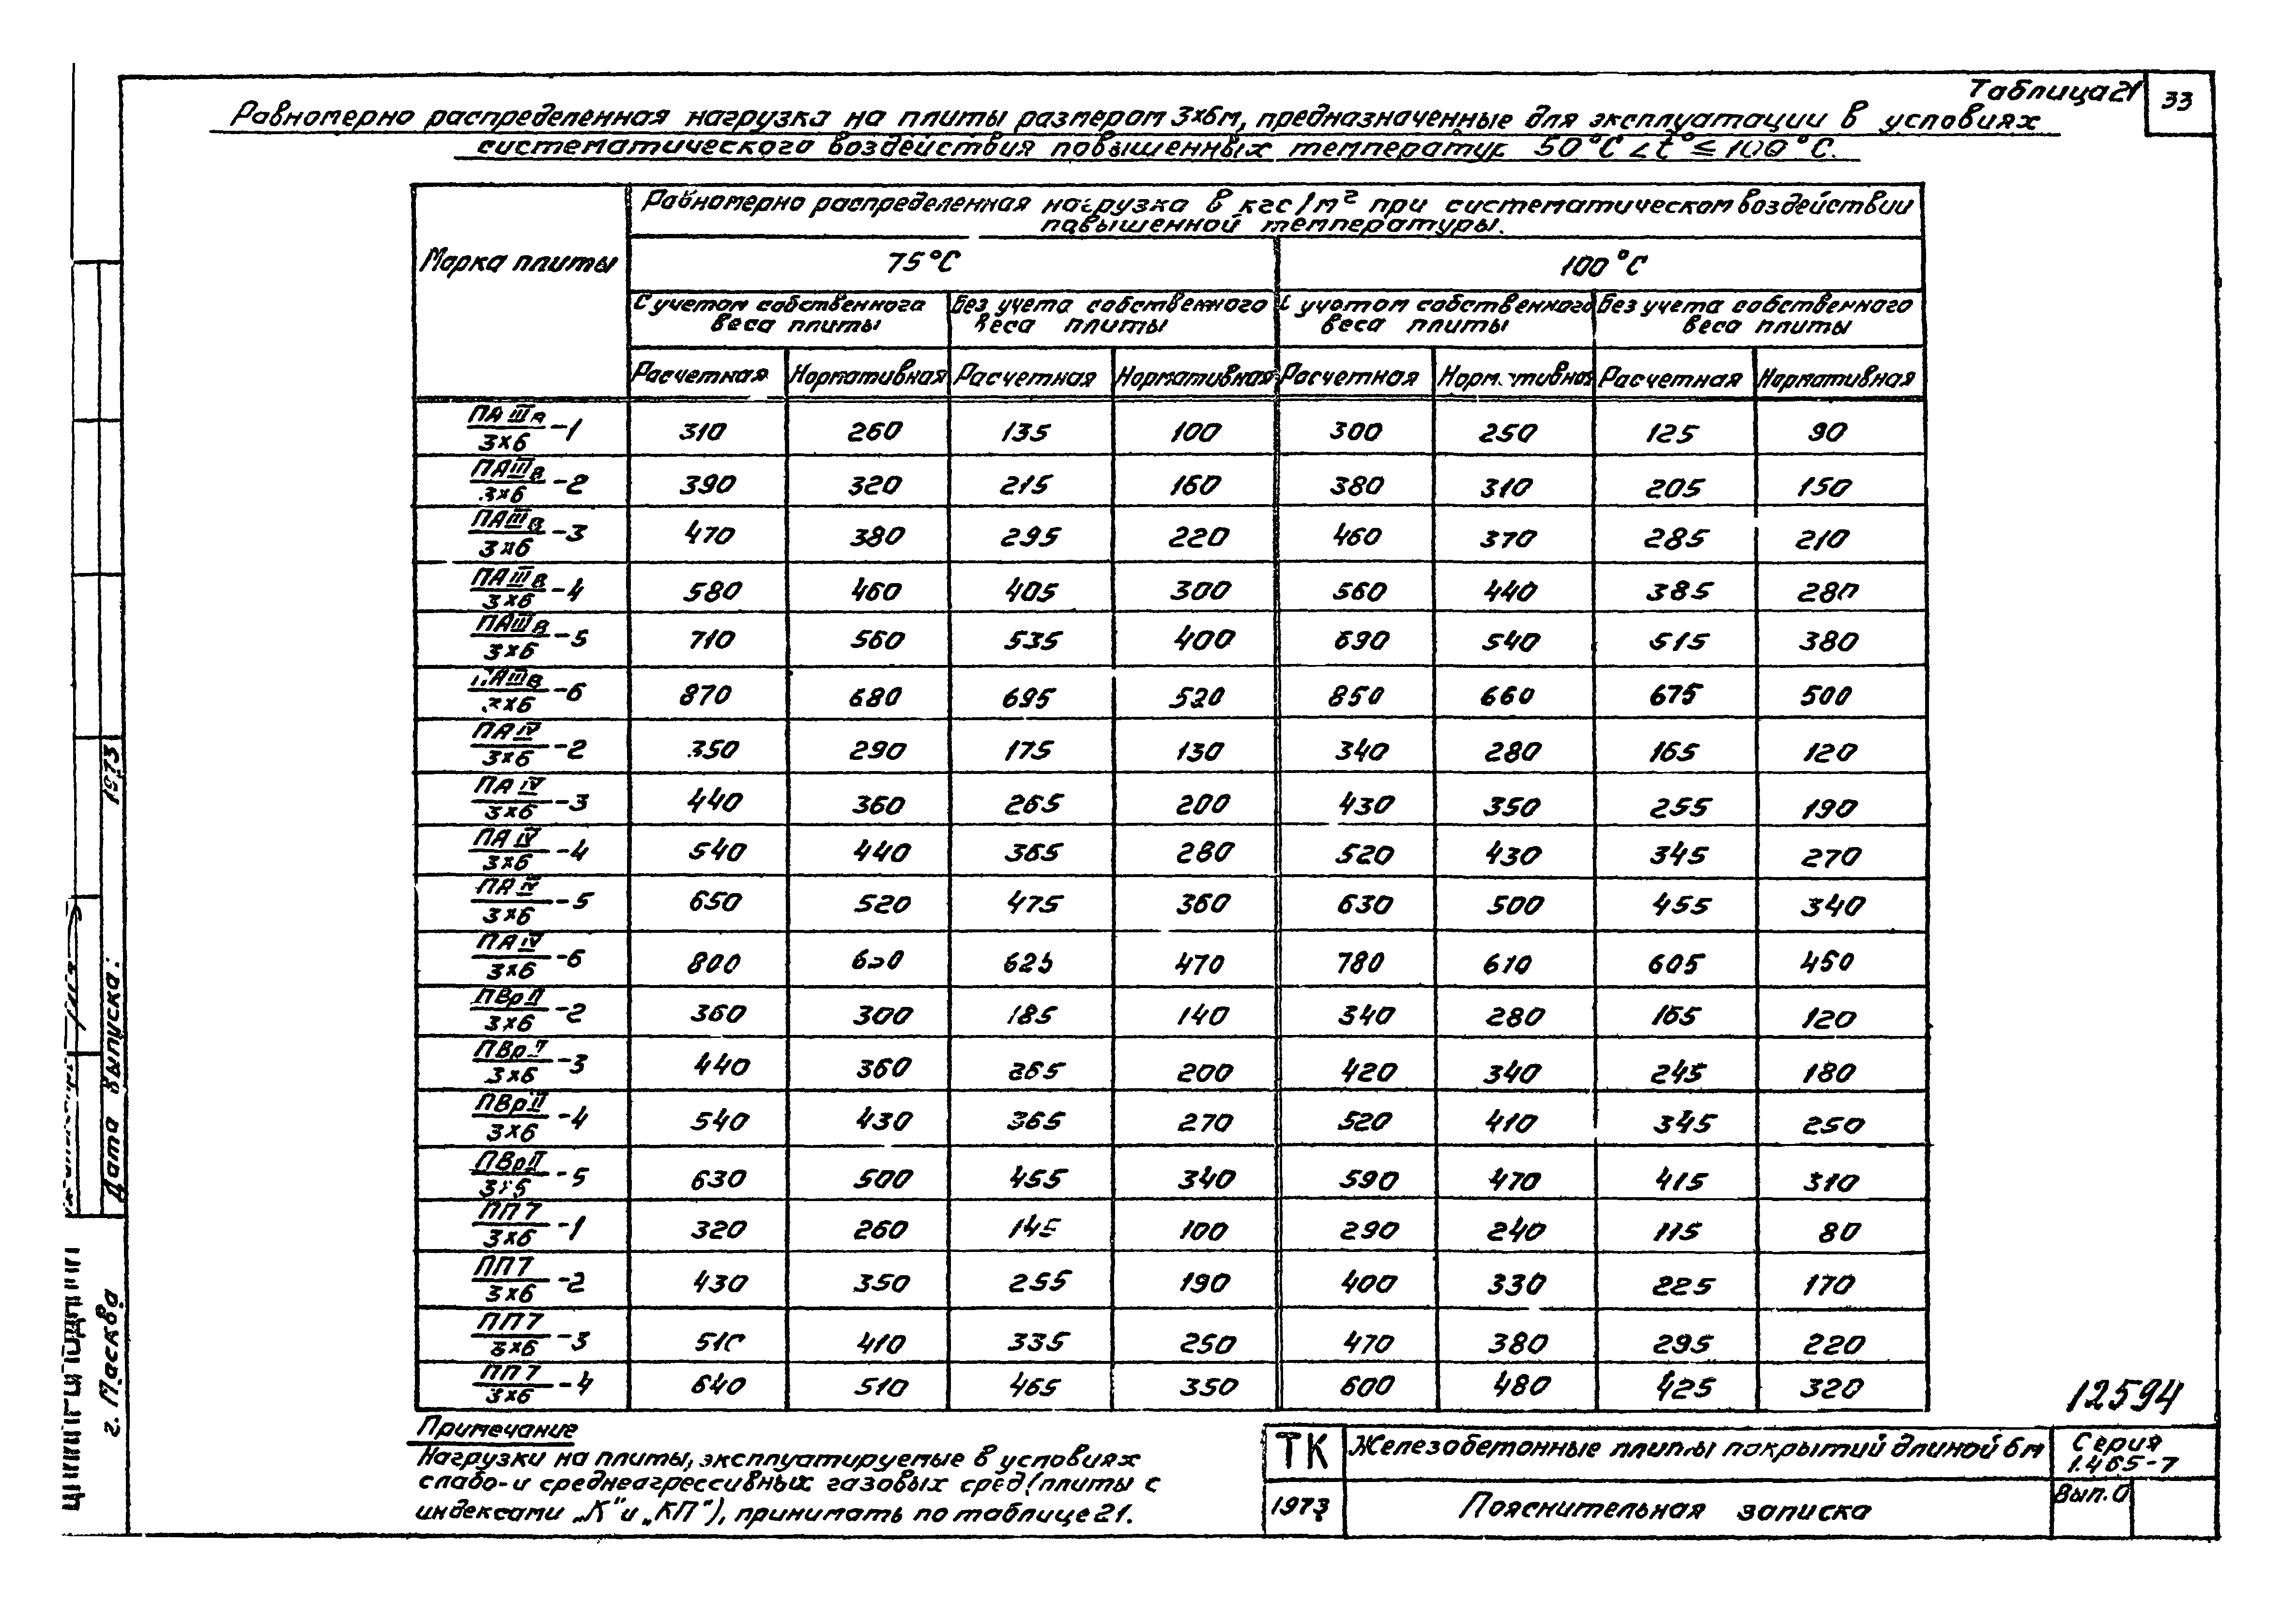 Таблица 21
33
Равномерно распределенная нагрузка на плиты размером 3×6м, предназначенные для эксплуатации в условиях
систематического воздействия повышенных температур 50°С < t° ≤ 100°С.
Марка плиты
Равномерно распределенная нагрузка в кгс/м² при систематическом воздействии
повышенной температуры.
75°С 100°С
С учетом собственного веса плиты Без учета собственного веса плиты С учетом собственного веса плиты Без учета собственного веса плиты
Расчетная Нормативная Расчетная Нормативная Расчетная Нормативная Расчетная Нормативная
ПАIIIв/3×6-1 310 260 135 100 300 250 125 90
ПАIIIв/3×6-2 390 320 215 160 380 310 205 150
ПАIIIв/3×6-3 470 380 295 220 460 370 285 210
ПАIIIв/3×6-4 580 460 405 300 560 440 385 280
ПАIIIв/3×6-5 710 560 535 400 690 540 515 380
ПАIIIв/3×6-6 870 680 695 520 850 660 675 500
ПАIV/3×6-2 350 290 175 130 340 280 165 120
ПАIV/3×6-3 440 360 265 200 430 350 255 190
ПАIV/3×6-4 540 440 365 280 520 430 345 270
ПАIV/3×6-5 650 520 475 360 630 500 455 340
ПАIV/3×6-6 800 625 470 780 610 605 450
ПВрII/3×6-2 360 300 185 140 340 280 165 120
ПВрII/3×6-3 440 360 265 200 420 340 245 180
ПВрII/3×6-4 540 430 365 270 520 410 345 250
ПВрII/3×6-5 630 500 455 340 590 470 415 310
ПП7/3×6-1 320 260 145 100 290 240 115 80
ПП7/3×6-2 430 350 255 190 400 330 225 170
ПП7/3×6-3 510 410 335 250 470 380 295 220
ПП7/3×6-4 640 510 465 350 600 480 425 320
Примечание
Нагрузки на плиты, эксплуатируемые в условиях
слабо- и среднеагрессивных газовых сред (плиты с
индексами „К" и „КП"), принимать по таблице 21.
12594
ТК
1973
Железобетонные плиты покрытий длиной 6м
Пояснительная записка
Серия
1.465-7
Вып. 0
Дата выпуска: 1973
г. Москва